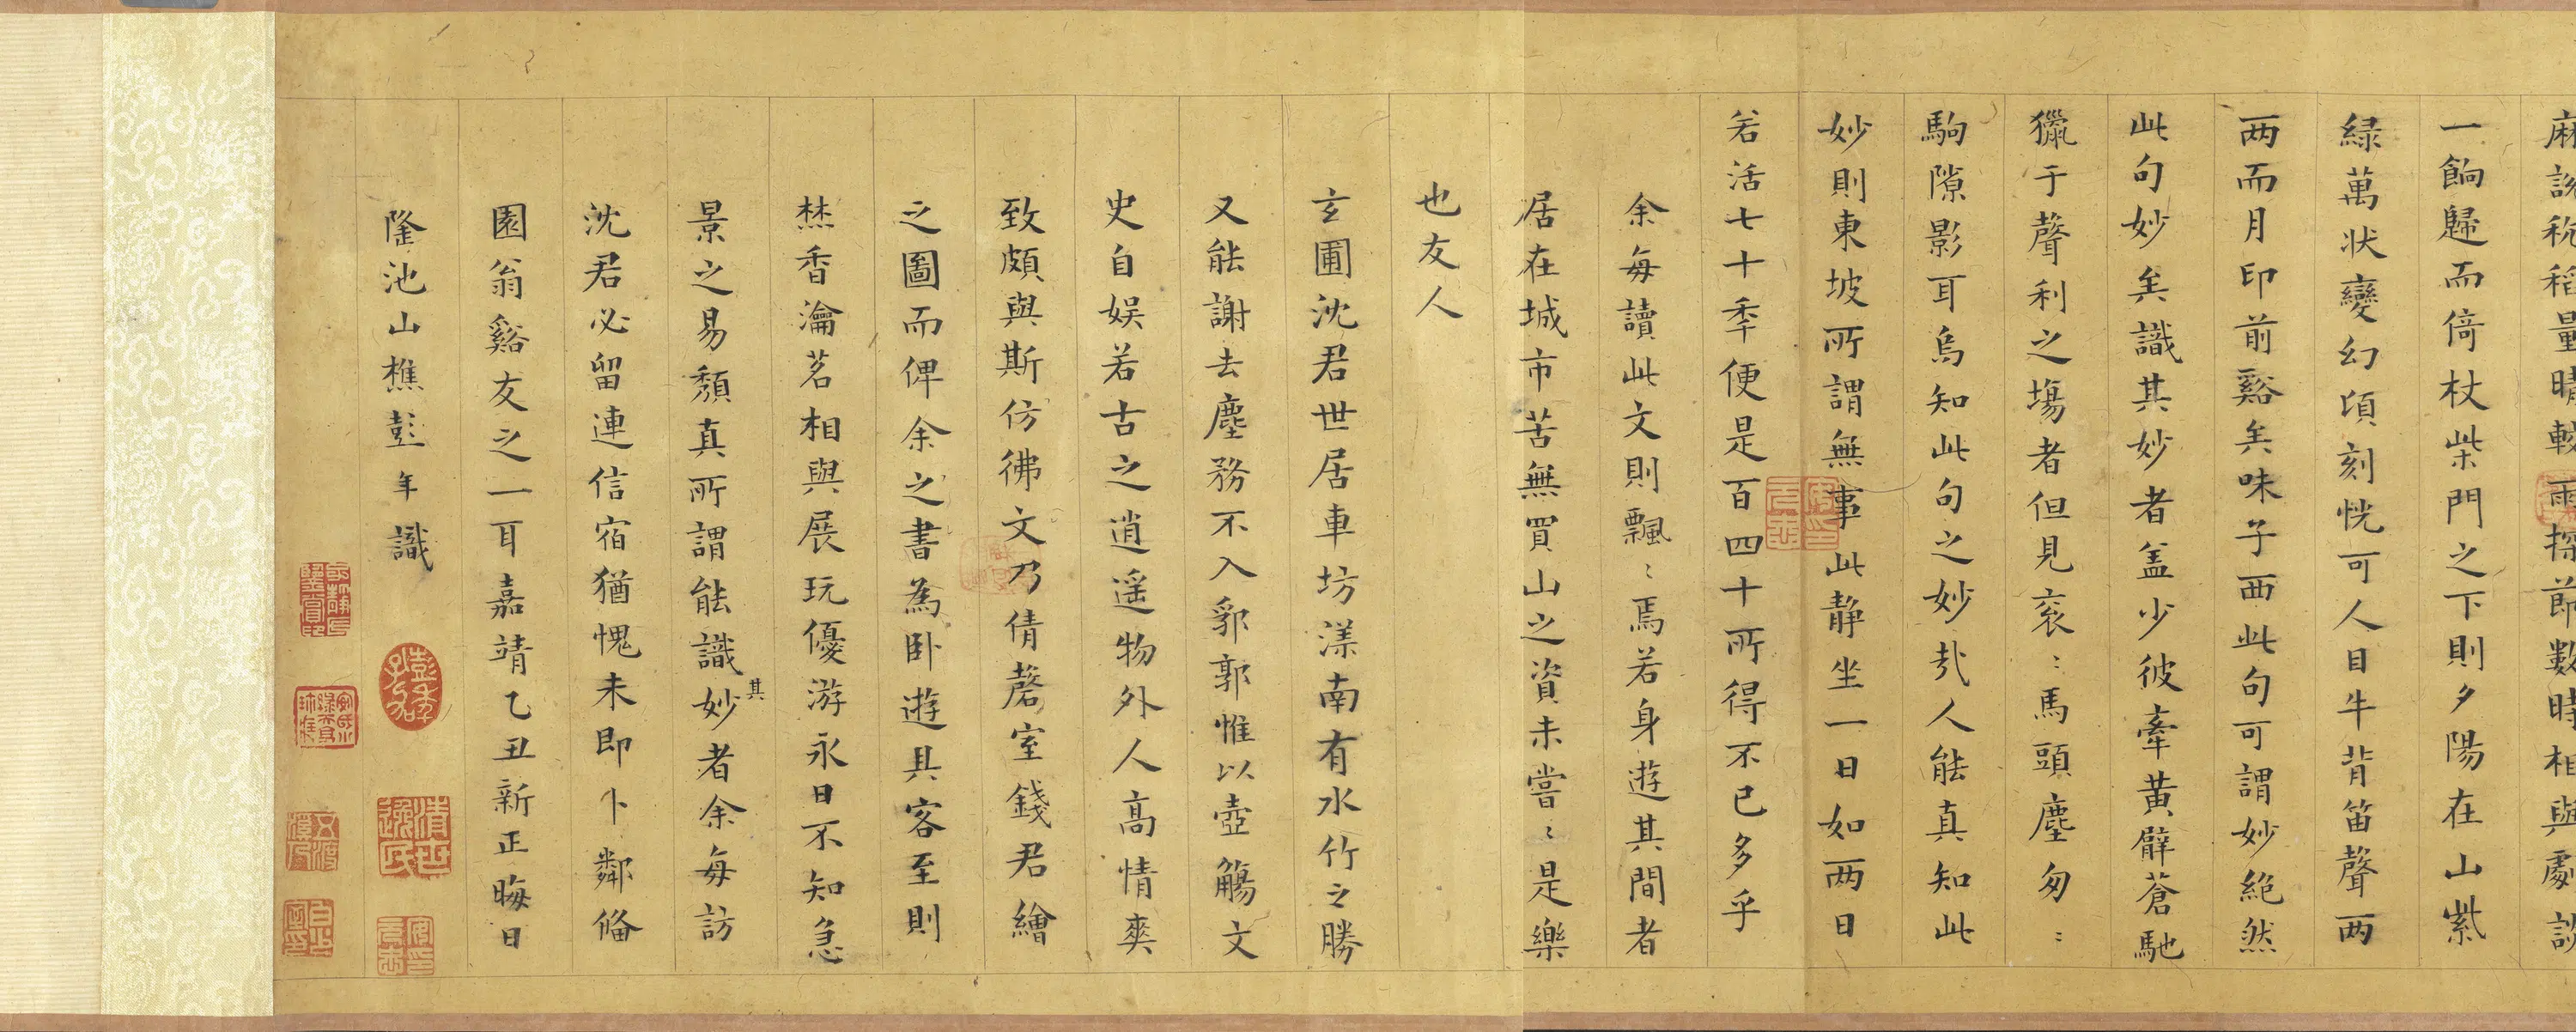 麻說秔稻量晴較雨探節數時相與劇談
一餉歸而倚杖柴門之下則夕陽在山紫
緑萬状變幻頃刻恍可人目牛背笛聲兩
两而月印前谿矣味子西此句可謂妙絶然
此句妙矣識其妙者盖少彼牽黃臂蒼馳
獵于聲利之塲者但見衮〻馬頭塵匆〻
駒隙影耳烏知此句之妙㢤人能真知此
妙則東坡所謂無事此静坐一日如两日
若活七十秊便是百四十所得不已多乎
余每讀此文則飄〻焉若身遊其間者
居在城市苦無買山之資未嘗〻是樂
也友人
玄圃沈君世居車坊漾南有水竹之勝
又能謝去塵務不入郛郭惟以壺觴文
史自娱若古之逍遥物外人高情爽
致頗與斯仿彿文乃倩磬室錢君繪
之圖而俾余之書為卧遊具客至則
焚香瀹茗相與展玩優游永日不知急
景之易頽真所謂能識妙者余每訪
其
沈君必留連信宿猶愧未即卜鄰俻
園翁谿友之一耳嘉靖乙丑新正晦日
隆池山樵彭年識
彭年
孔加
清世
逸民